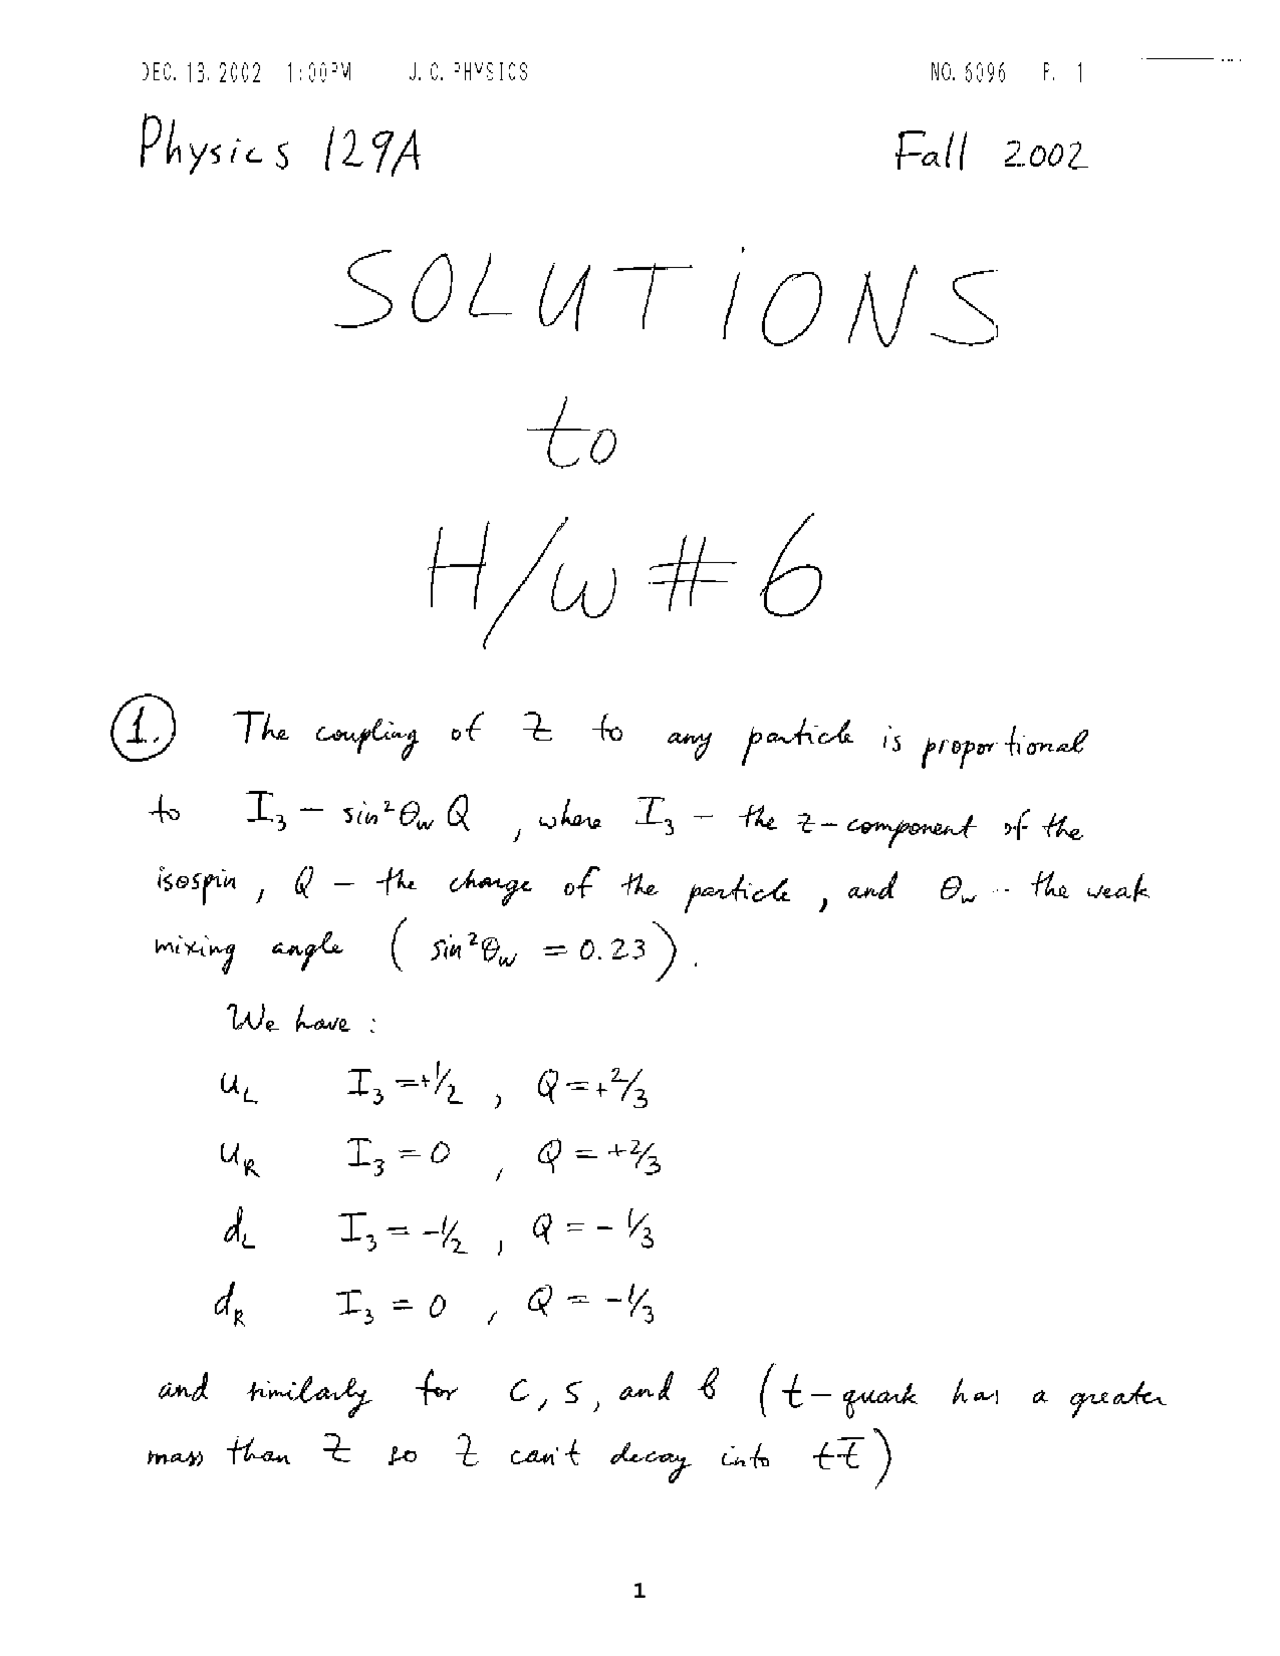 DEC. 13. 2002 1:00PM J. C. PHYSICS NO. 6096 P. 1
Physics 129A Fall 2002
SOLUTIONS
to
H/W # 6
1. The coupling of Z to any particle is proportional
to I₃ − sin²θ_W Q , where I₃ − the z-component of the
isospin , Q − the charge of the particle , and θ_W -- the weak
mixing angle ( sin²θ_W = 0.23 ) .
We have :
u_L I₃ = +1/2 , Q = +2/3
u_R I₃ = 0 , Q = +2/3
d_L I₃ = −1/2 , Q = − 1/3
d_R I₃ = 0 , Q = −1/3
and similarly for c, s, and b (t-quark has a greater
mass than Z so Z can't decay into tt̅ )
1